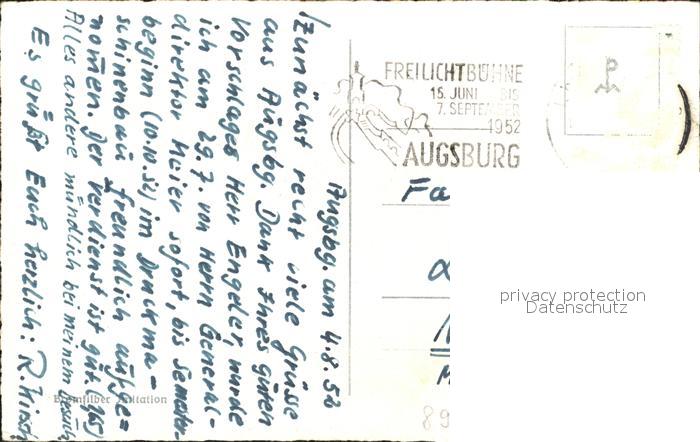 Augsbg. am 4.8.52
Zunächst recht viele Grüsse
aus Augsbg. Dank Ihres guten
Vorschlages Herr Engeler, wurde
ich am 29.7. von Herrn General-
direktor Meier sofort, bis semester-
beginn (10.10.52) im Druckma-
schinenbau freundlich aufge=
nom̄en. Der Verdienst ist gut.
Alles andere mündlich bei meinem Besuch
Es grüßt Euch herzlich: R. Hirsch
FREILICHTBÜHNE
15. JUNI BIS
7. SEPTEMBER
1952
AUGSBURG
P
Fa
89
privacy protection
Datenschutz
Bromsilber Imitation